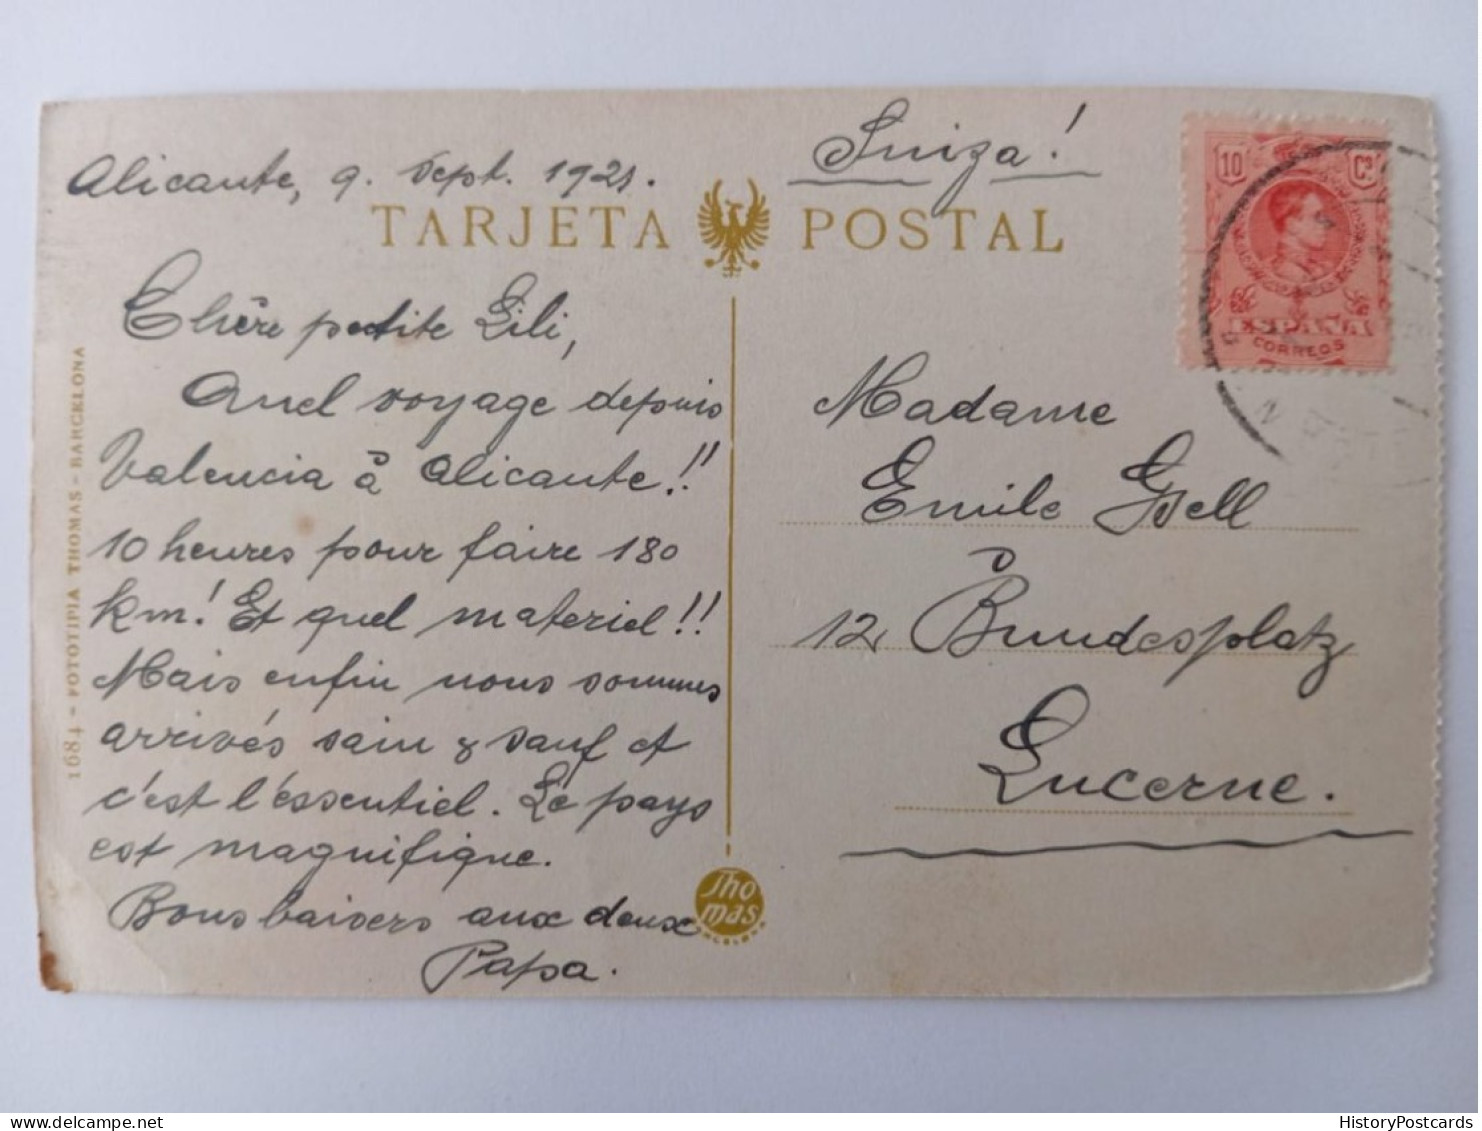 Alicante, 9. Sept. 1921.
Suiza!
TARJETA POSTAL
10 Cs
ESPAÑA
CORREOS
Chère petite Lili,
Quel voyage depuis
Valencia à Alicante!!
10 heures pour faire 180
km! Et quel materiel!!
Mais enfin nous sommes
arrivés sain & sauf et
c'est l'éssentiel. Le pays
est magnifique.
Bons baisers aux deux
Papa.
Madame
Emile Gsell
12, Bundesplatz
Lucerne.
1684 - FOTOTIPIA THOMAS - BARCELONA
Thomas
BARCELONA
HistoryPostcards.com